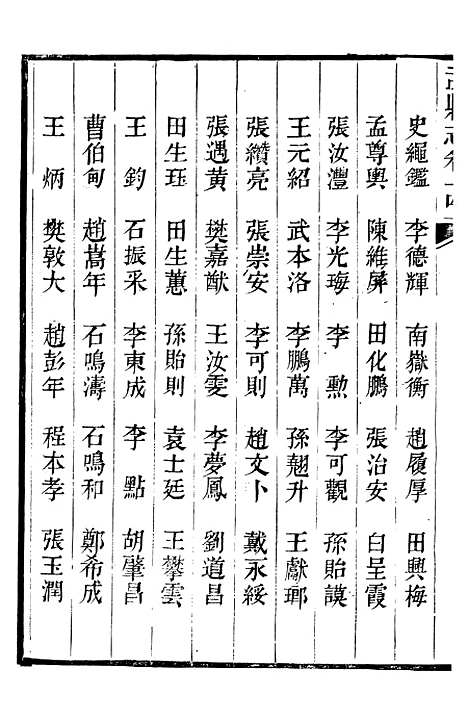 史繩鑑 李德輝 南嶽衡 趙履厚 田興梅
孟尊輿 陳維屏 田化鵬 張治安 白呈霞
張汝灃 李光瑇 李勲 李可觀 孫貽謨
王元紹 武本洛 李鵬萬 孫翹升 王獻瑯
張纘亮 張崇安 李可則 趙文卜 戴永綏
張遇黄 樊嘉猷 王汝雯 李夢鳳 劉道昌
田生珏 田生蕙 孫貽則 袁士廷 王攀雲
王鈞 石振采 李東成 李點 胡肇昌
曹伯甸 趙嵩年 石鳴濤 石鳴和 鄭希成
王炳 樊敦大 趙彭年 程本孝 張玉潤